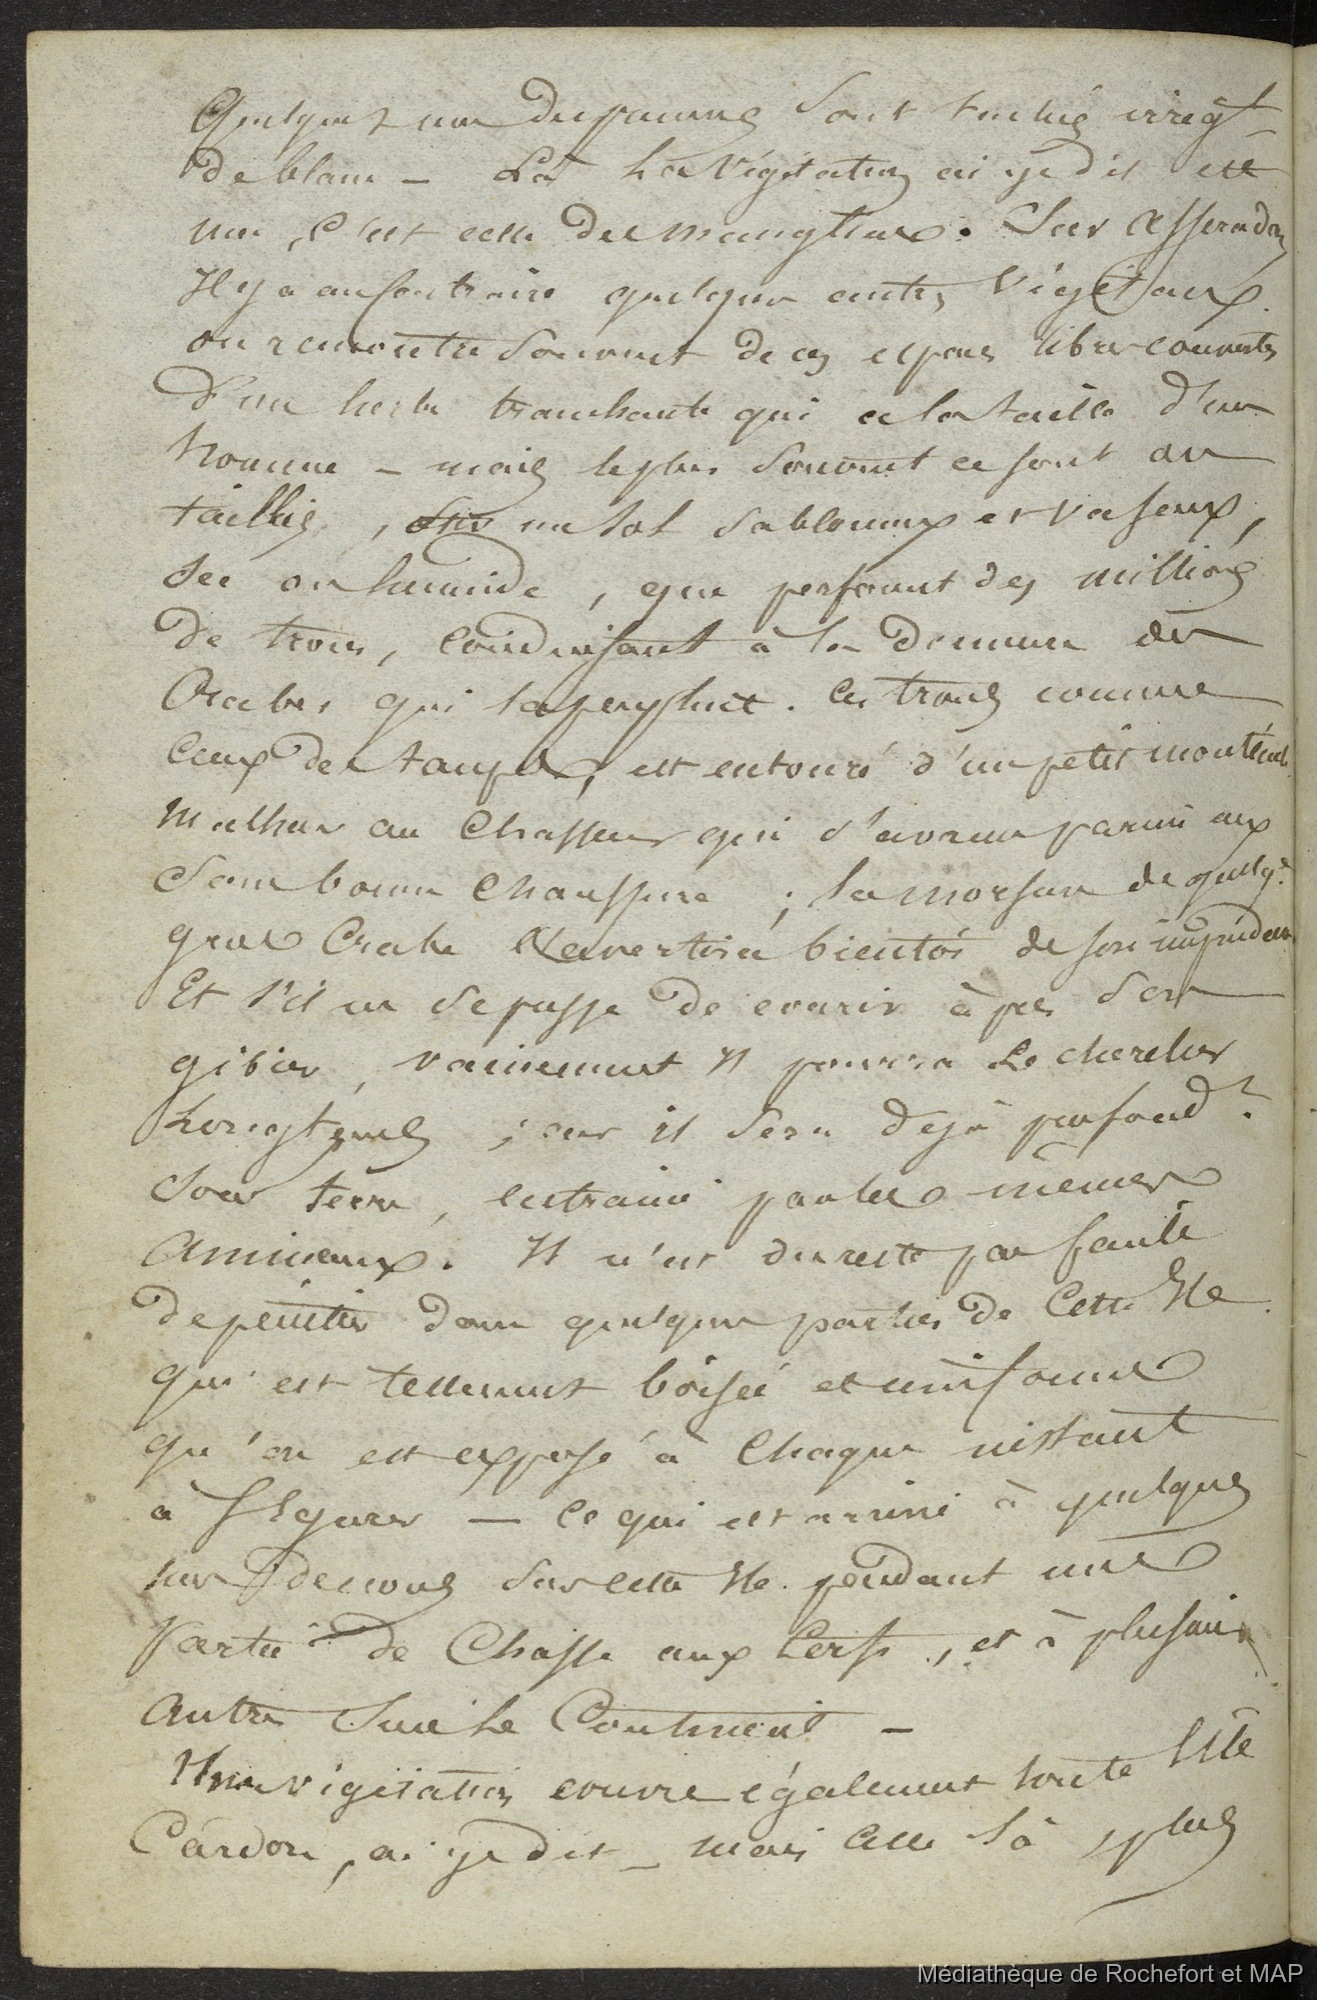 Quelques unes des paumes sont tachés irrégt
de blanc — Là la végétation ai je dit est
une, c'est celle des mangliers. Sur Asseradoz
Il y a au contraire quelques autres végétaux.
on rencontre souvent de ces espaces libres couverts
d'une herbe tranchante qui a la taille d'un
homme — mais le plus souvent ce sont des
taillis, sur un sol sablonneux et vaseux,
sec ou humide, que perforent des millions
de trous, conduisant à la demeure des
Crabes qui la peuplent. Ces trous comme
ceux des taupes, est entouré d'un petit monticule
Malheur au chasseur qui s'avance parmi eux
sans bonne chaussure ; la morsure de quelq.
gros Crabe l'avertira bientôt de son imprudence
Et s'il ne se presse de courir après son
gibier, vainement Il pourra le chercher
Longtemps ; car il sera dejà profond.
sous terre, entrainé par les mêmes
Animaux. Il n'est du reste pas facile
de pénétrer dans quelques parties de Cette Ile.
qui est tellement boisée et uniforme
qu'on est exposé à chaque instant
à s'égarer — ce qui est arrivé à quelques
uns de nous sur cette Ile. pendant une
Partie de Chasse aux Cerfs, et à plusieurs
autres sur le Continent —
Une végétation couvre également toute l'Ile
Cardon, ai je dit — mais elle là plus
Médiathèque de Rochefort et MAP